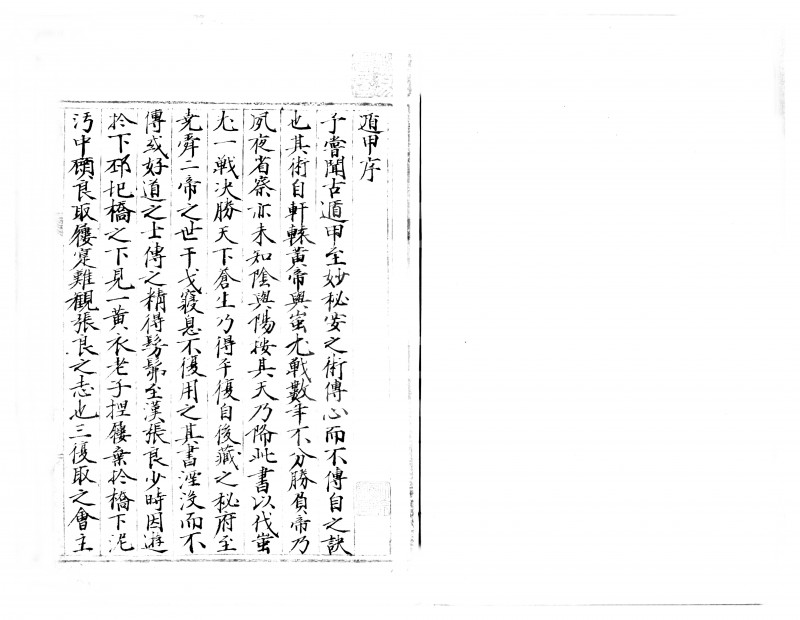 遁甲序
予嘗聞古遁甲至妙秘安之術傳心而不傳自之訣
也其術自軒轅黃帝與蚩尤戰數年不分勝負帝乃
夙夜省察亦未知陰與陽按其天乃降此書以伐蚩
尤一戰決勝天下蒼生乃得平復自後藏之秘府至
堯舜二帝之世干戈寢息不復用之其書湮沒而不
傳或好道之士傳之精得髣髴至漢張良少時因遊
於下邳圯橋之下見一黃衣老子捏鞋棄於橋下泥
污中顧良取鞋寔難觀張良之志也三復取之會主